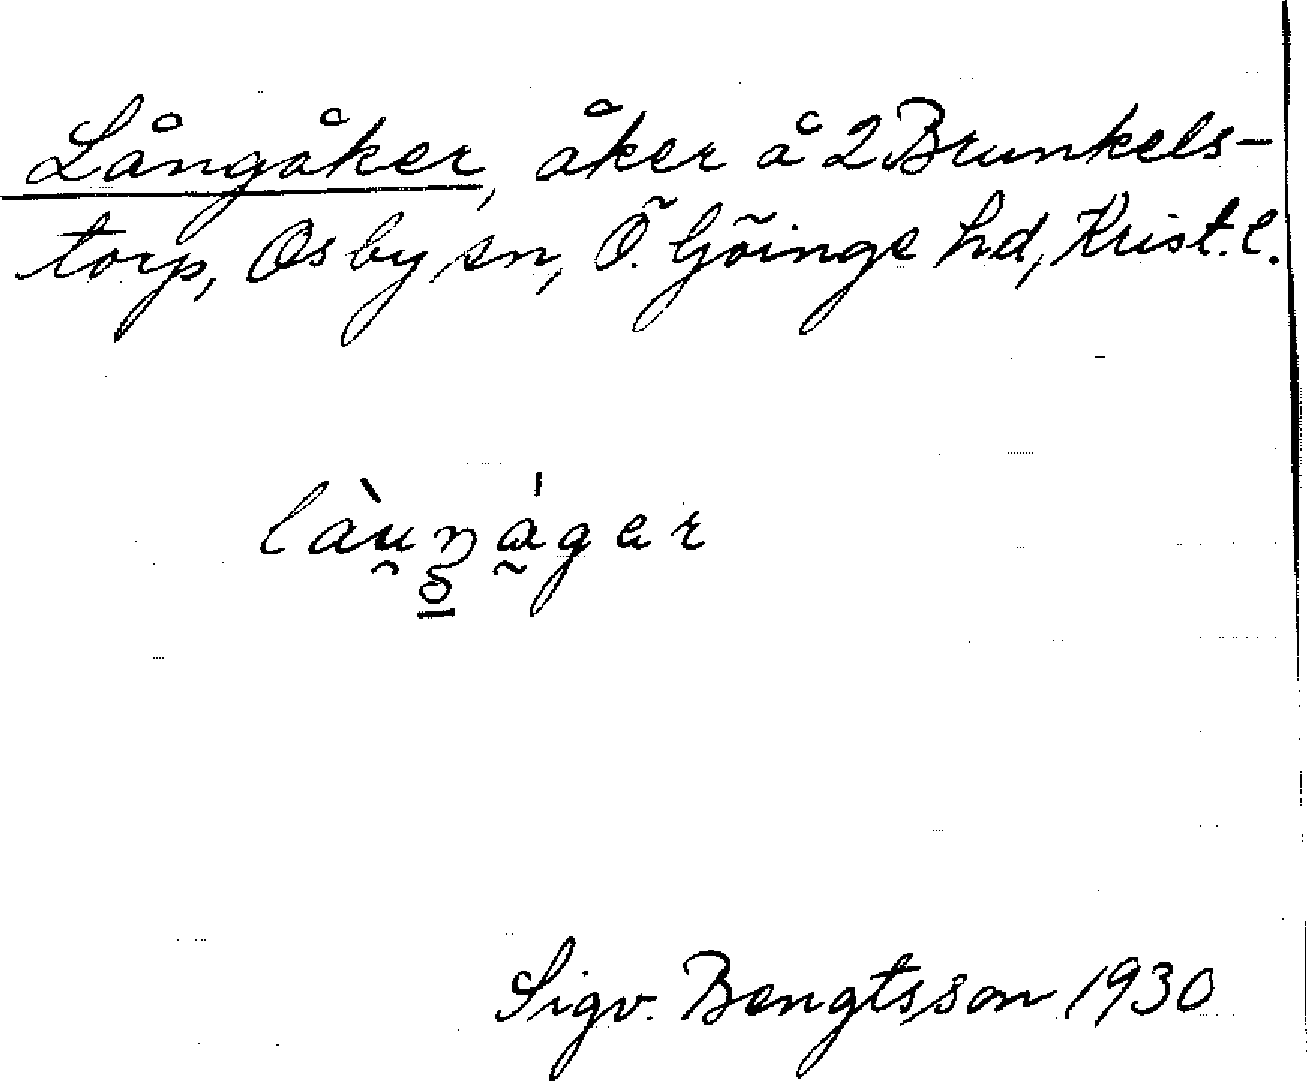 Långåker, åker å 2 Brunkels-
torp, Osby sn, Ö. Göinge hd, Krist. l.
Sigv. Bengtsson 1930